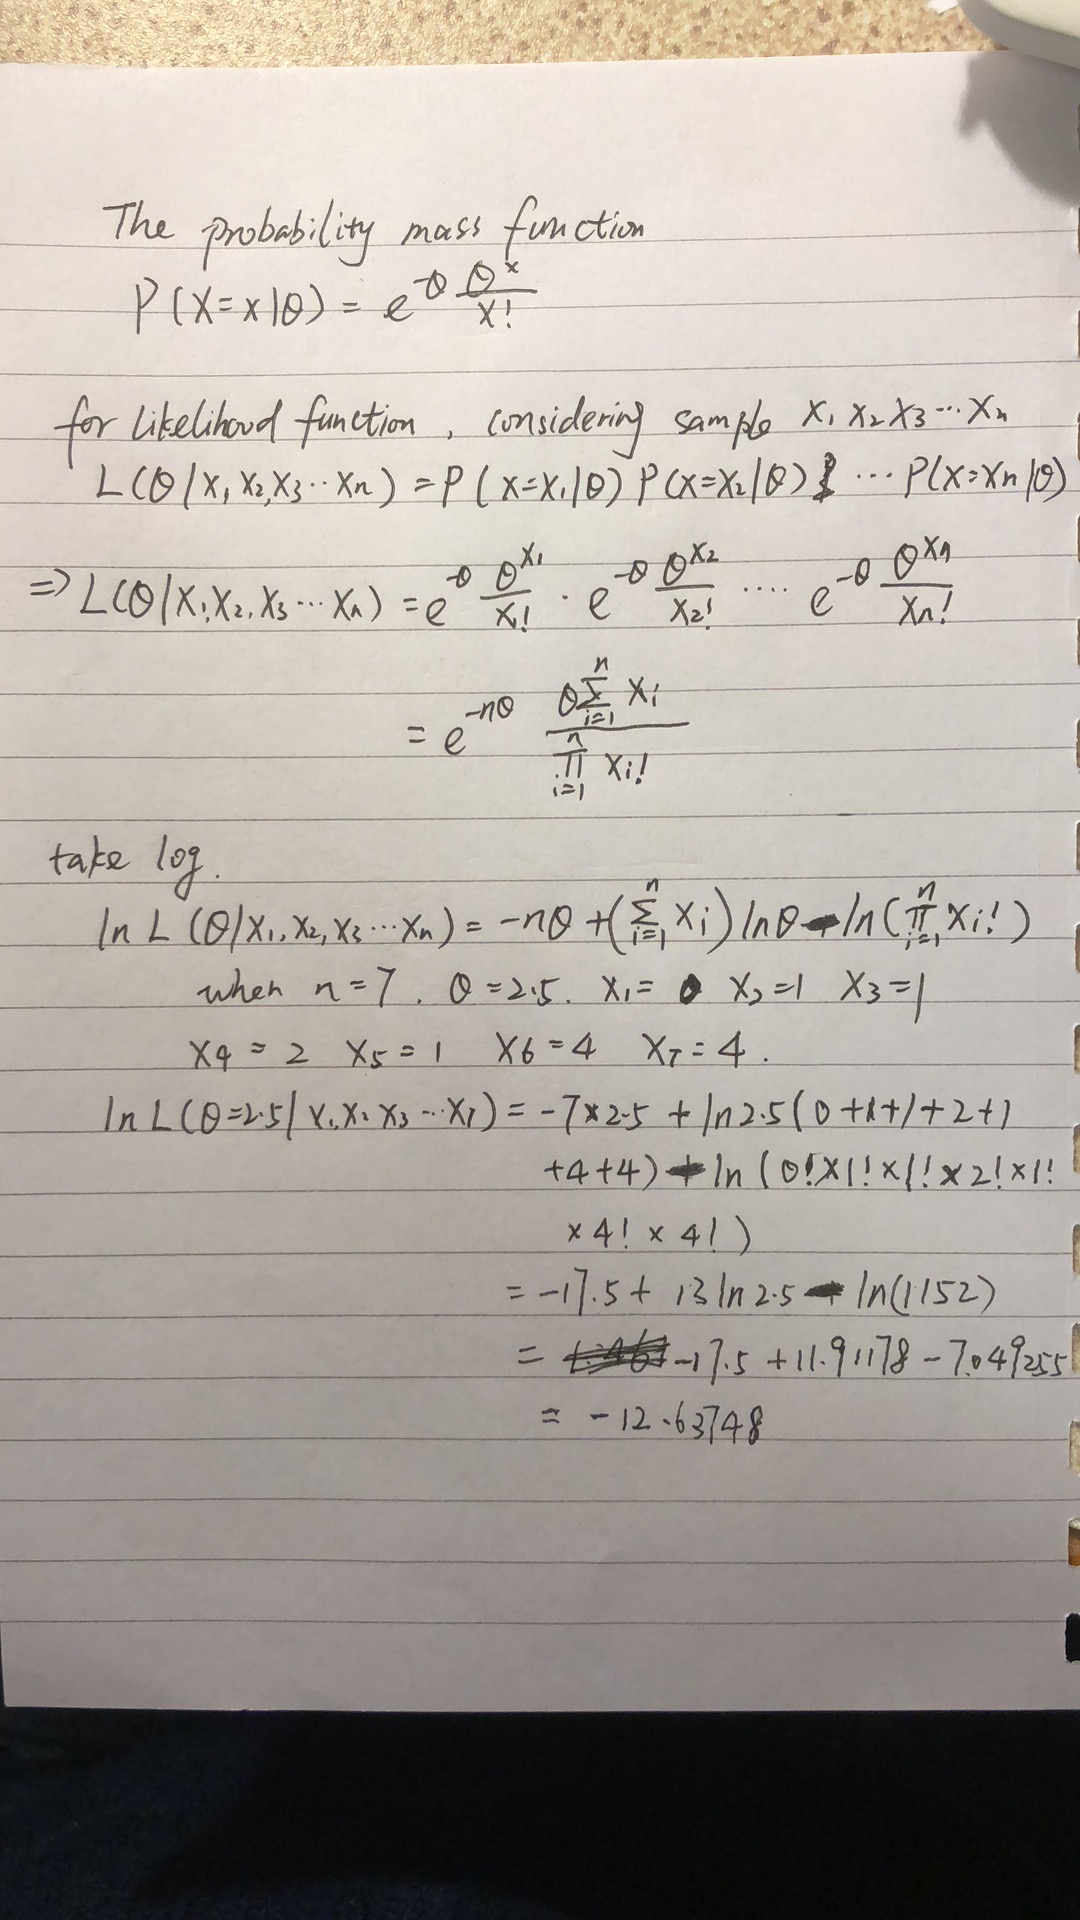 The probability mass function
P(X=x|θ) = e^-θ θ^x / x!
for likelihood function, considering sample x₁ x₂ x₃ ⋯ xₙ
L(θ|x₁ x₂, x₃ ⋯ xₙ) = P(x=x₁|θ) P(x=x₂|θ) ⋯ P(x=xₙ|θ)
⇒ L(θ|x₁, x₂, x₃ ⋯ xₙ) = e^-θ θ^x₁ / x₁! · e^-θ θ^x₂ / x₂! ⋯⋅ e^-θ θ^xₙ / xₙ!
= e^-nθ θ^∑_{i=1}^{n} xᵢ / ∏_{i=1}^{n} xᵢ!
take log.
ln L (θ|x₁, x₂, x₃ ⋯ xₙ) = -nθ + (∑_{i=1}^{n} xᵢ) lnθ - ln(∏_{i=1}^{n} xᵢ!)
when n=7. θ=2.5. x₁= 0 x₂=1 x₃=1
x₄ = 2 x₅ = 1 x₆ = 4 x₇ = 4.
ln L(θ=2.5|x₁ x₂ x₃ ⋯ x₇) = -7×2.5 + ln 2.5 (0+1+1+2+1
+4+4) - ln (0!×1!×1!×2!×1!
×4! × 4!)
= -17.5 + 13 ln 2.5 - ln(1152)
= -17.5 + 11.91178 - 7.049255
= -12.63748